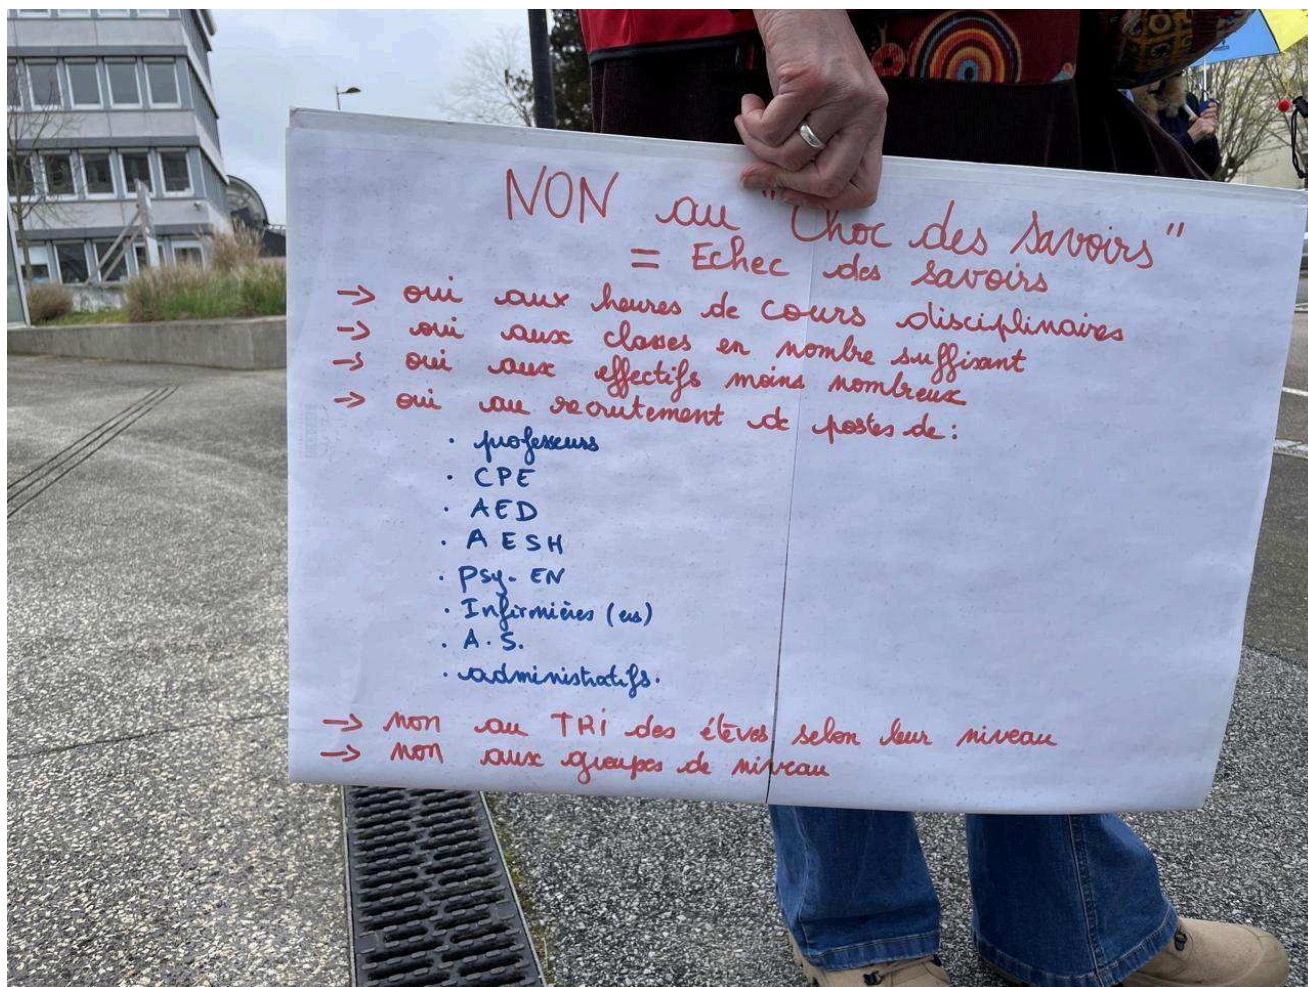 NON au "Choc des savoirs"
= Echec des savoirs
→ oui aux heures de cours disciplinaires
→ oui aux classes en nombre suffisant
→ oui aux effectifs moins nombreux
→ oui au recrutement de postes de :
· professeurs
· CPE
· AED
· AESH
· Psy. EN
· Infirmières (ers)
· A.S.
· administratifs.
→ non au TRi des élèves selon leur niveau
→ non aux groupes de niveau